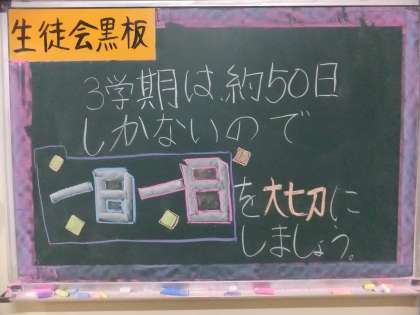 生徒会黒板
3学期は、約50日
しかないので
一日一日を大切に
しましょう。